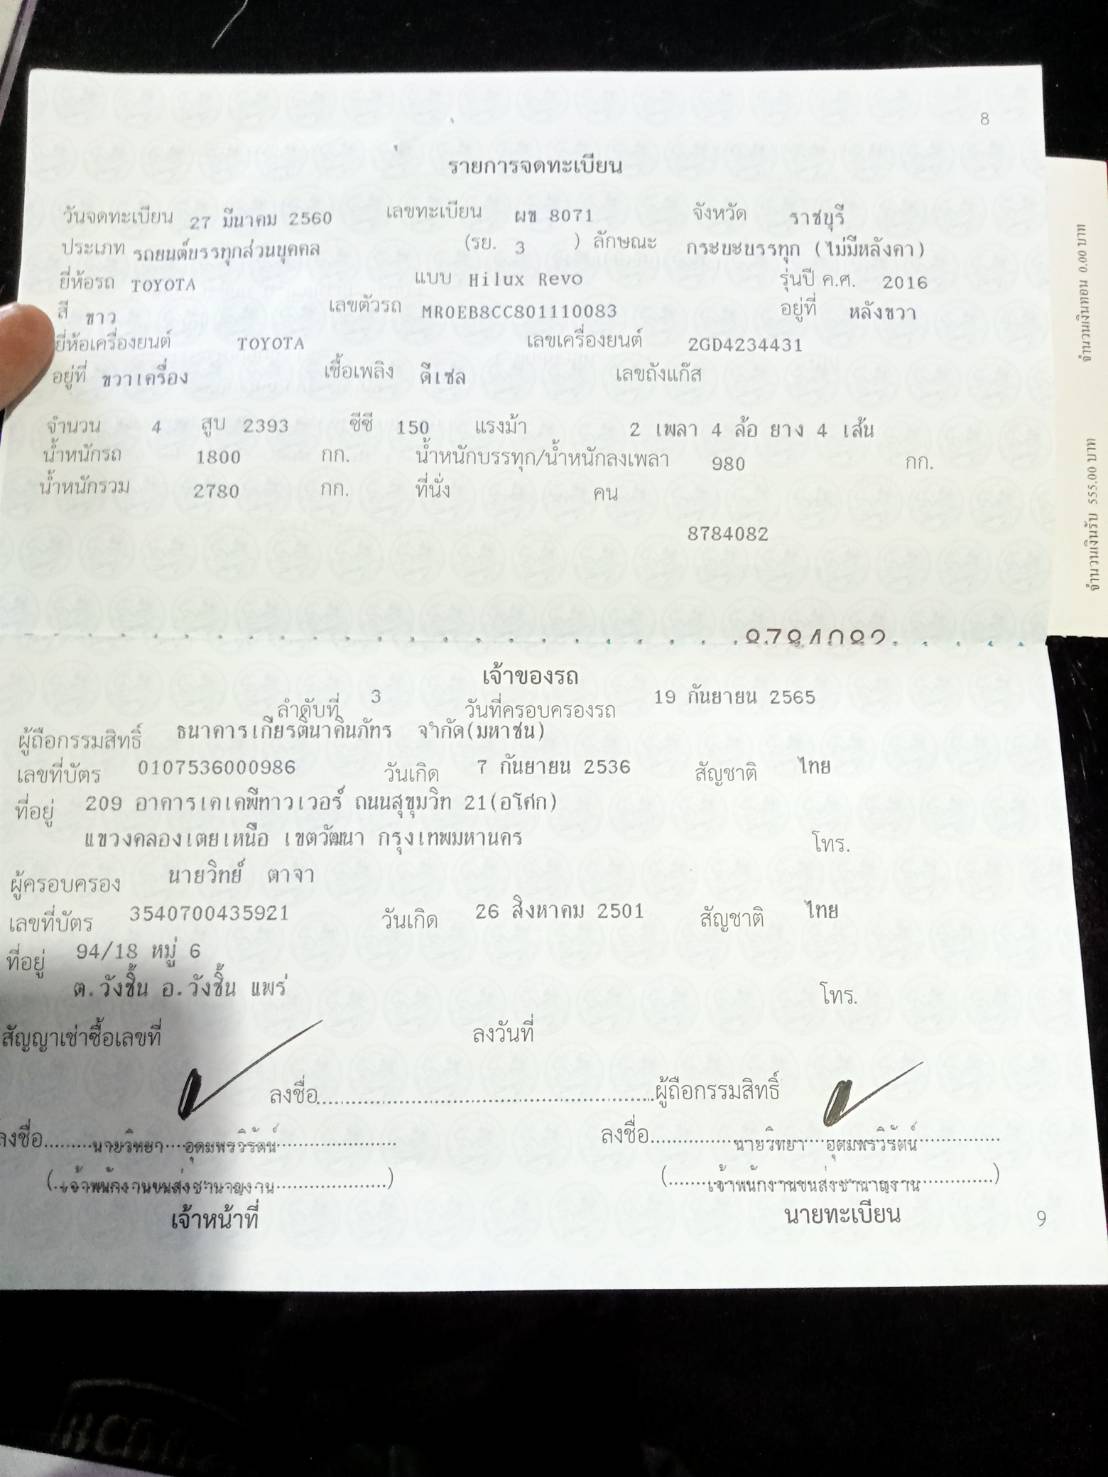 8
รายการจดทะเบียน
วันจดทะเบียน 27 มีนาคม 2560 เลขทะเบียน ผข 8071 จังหวัด ราชบุรี
ประเภท รถยนต์บรรทุกส่วนบุคคล (รย. 3 ) ลักษณะ กระบะบรรทุก (ไม่มีหลังคา)
ยี่ห้อรถ TOYOTA แบบ Hilux Revo รุ่นปี ค.ศ. 2016
สี ขาว เลขตัวรถ MR0EB8CC801110083 อยู่ที่ หลังขวา
ยี่ห้อเครื่องยนต์ TOYOTA เลขเครื่องยนต์ 2GD4234431
อยู่ที่ ขวาเครื่อง เชื้อเพลิง ดีเซล เลขถังแก๊ส
จำนวน 4 สูบ 2393 ซีซี 150 แรงม้า 2 เพลา 4 ล้อ ยาง 4 เส้น
น้ำหนักรถ 1800 กก. น้ำหนักบรรทุก/น้ำหนักลงเพลา 980 กก.
น้ำหนักรวม 2780 กก. ที่นั่ง คน
8784082
8784082
จำนวนเงินรับ 555.00 บาท จำนวนเงินทอน 0.00 บาท
เจ้าของรถ
ลำดับที่ 3 วันที่ครอบครองรถ 19 กันยายน 2565
ผู้ถือกรรมสิทธิ์ ธนาคารเกียรตินาคินภัทร จำกัด(มหาชน)
เลขที่บัตร 0107536000986 วันเกิด 7 กันยายน 2536 สัญชาติ ไทย
ที่อยู่ 209 อาคารเคเคพีทาวเวอร์ ถนนสุขุมวิท 21(อโศก)
แขวงคลองเตยเหนือ เขตวัฒนา กรุงเทพมหานคร โทร.
ผู้ครอบครอง นายวิทย์ ตาจา
เลขที่บัตร 3540700435921 วันเกิด 26 สิงหาคม 2501 สัญชาติ ไทย
ที่อยู่ 94/18 หมู่ 6
ต.วังชิ้น อ.วังชิ้น แพร่ โทร.
สัญญาเช่าซื้อเลขที่ ลงวันที่
ลงชื่อ ผู้ถือกรรมสิทธิ์
ลงชื่อ นายวิทยา อุดมพรวิรัตน์ ลงชื่อ นายวิทยา อุดมพรวิรัตน์
(เจ้าพนักงานขนส่งชำนาญงาน) (เจ้าพนักงานขนส่งชำนาญงาน)
เจ้าหน้าที่ นายทะเบียน 9